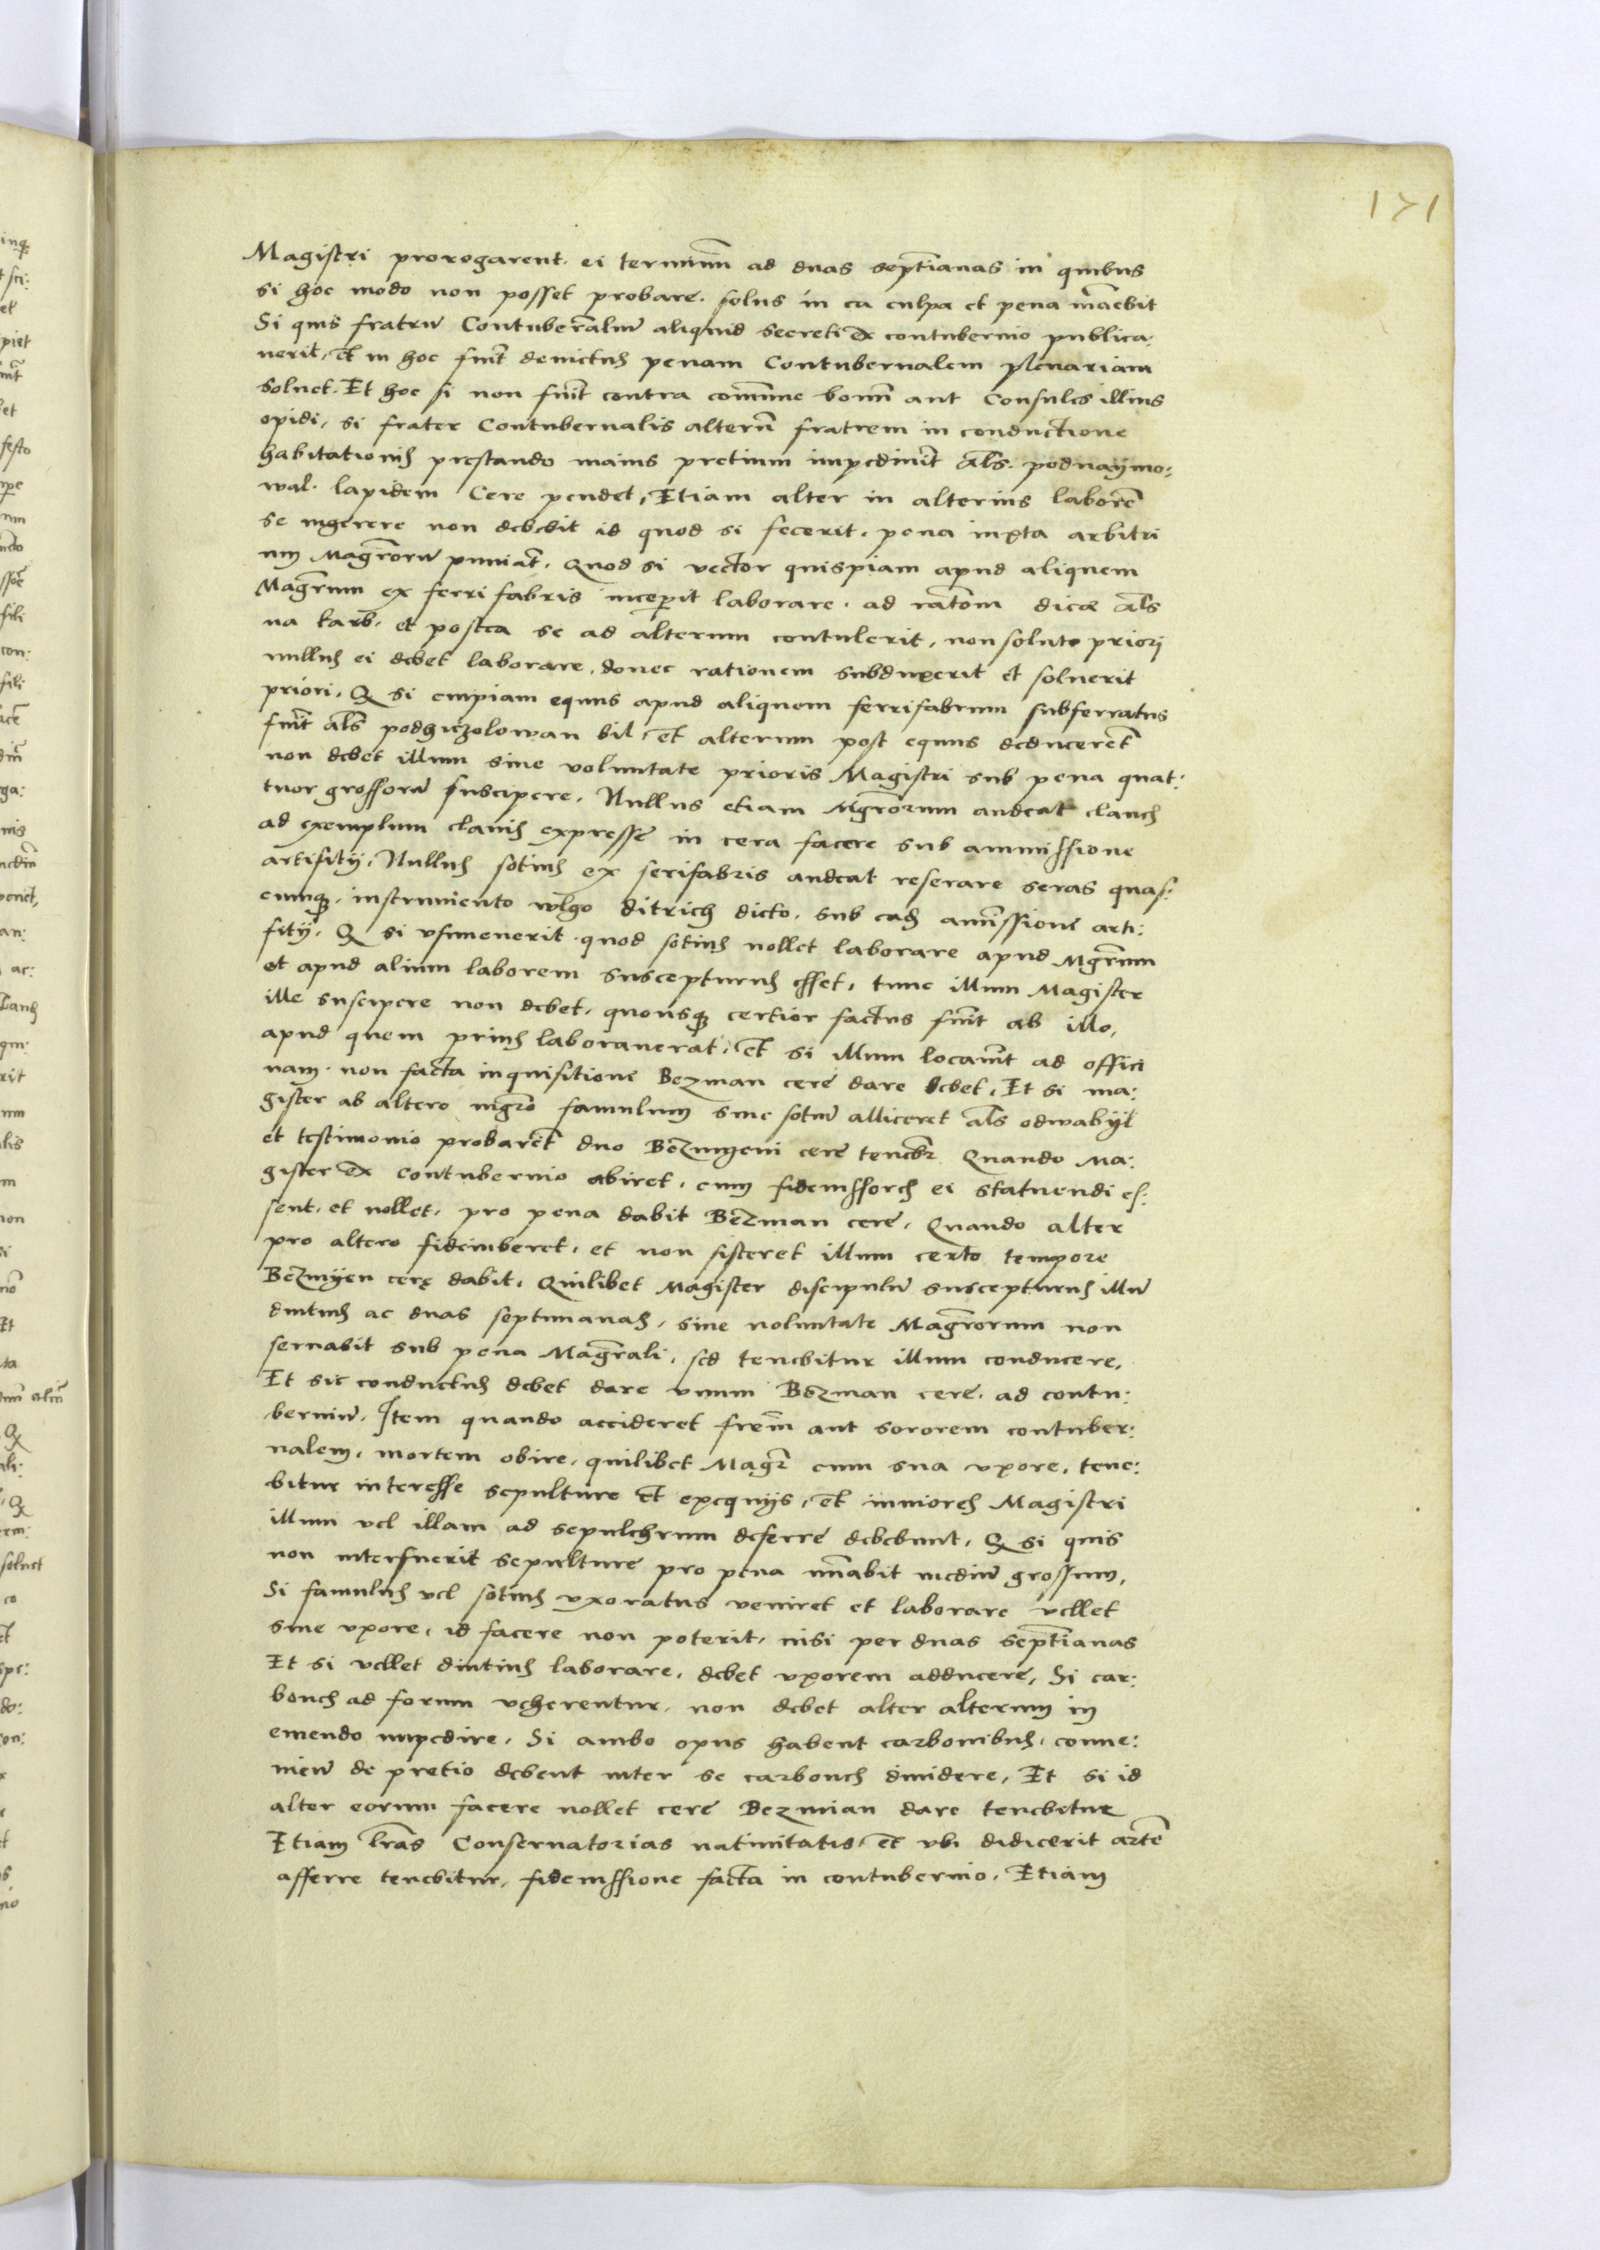 171
Magistri prorogarent. ei terminũ ad duas septĩanas in quibus
si hoc modo non posset probare. solus in ea culpa et pena mãebit
Si quis fratrũ Contuberñaliũ aliquid secreti ex contubernio publica:
uerit, et in hoc fuit̃ deuictus penam Contubernalem plenariam
soluet. Et hoc si non fuit̃ contra com̃une bonũ aut Consules illius
opidi, si frater Contubernalis alterũ fratrem in conductione
habitationis prestando maius pretium impediuit̃ als̃. podnaÿmo:
wal. lapidem Cere pendet, Etiam alter in alterius laborẽ
se ingerere non debebit id quod si fecerit, pena iuxta arbitri
um Magr̃orũ puniat̃. Quod si vector quispiam apud aliquem
Magr̃um ex ferri fabris inceperit laborare. ad rat̃om dicæ als̃
na karb. et postea se ad alterum contulerit, non soluto priori
nullus ei debet laborare, donec rationem subduxerit et soluerit
priori, Q si cuipiam equus apud aliquem ferrifabrum subferratus
fuit̃ als̃ podhiczolowan bil, et alterum post equus deduceret̃
non debet illum sine voluntate prioris Magistri sub pena quat:
tuor grossorũ suscipere, Nullus etiam Mgr̃orum audeat claues
ad exemplum clauis expresse in cera facere sub ammissione
artifitij, Nullus sotius ex serifabris audeat reserare seras quas:
cumq. instrumento wlgo ditrich dicto, sub eadẽ amĩssione arti:
fitij, Q si vsuuenerit quod sotius nollet laborare apud Mgr̃um
et apud alium laborem suscepturus esset, tunc illum Magister
ille suscipere non debet, quousq. certior factus fuit̃ ab illo,
apud quem prius laborauerat, et si illum locauit̃ ad offici
nam. non facta inquisitione Bezman cere dare debet, Et si ma:
gister ab altero mgr̃o famulum siue sotiũ alliceret als̃ odwabÿl
et testimonio probaret̃ duo Bezmyeni cere teneb̃r Quando Ma:
gister ex contubernio abiret, cum fideiussores ei statuendi es:
sent, et nollet, pro pena dabit Bezman cere, Quando alter
pro altero fideiuberet, et non sisteret illum certo tempore
Bezmÿen cerę dabit, Quilibet Magister discipulũ suscepturus illũ
diutius ac duas septimanas, sine voluntate Magr̃orum non
seruabit sub pena Magr̃ali, sed tenebitur illum conducere,
Et sic conductus debet dare vnum Bezman cere, ad contu:
berniũ, Item quando accideret frẽm aut sororem contuber:
nalem, mortem obire, quilibet Magr̃ cum sua vxore, tene:
bitur interesse sepulture et exequijs, et iuniores Magistri
illum vel illam ad sepulchrum deferre debebunt, Q si quis
non interfuerit sepulture pro pena nũabit mediũ grossum,
Si famulus vel sotius vxoratus veniret et laborare vellet
sine vxore, id facere non poterit, nisi per duas septĩanas
Et si vellet diutius laborare, debet vxorem adducere, Si car:
bones ad forum veherentur, non debet alter alterum in
emendo impedire, Si ambo opus habent carbonibus, conue:
nieñ de pretio debent inter se carbones diuidere, Et si id
alter eorum facere nollet cere Bezmian dare tenebitur
Etiam lr̃as Conseruatorias natiuitatis, et vbi didicerit artẽ
afferre tenebitur, fideiussione facta in contubernio, Etiam